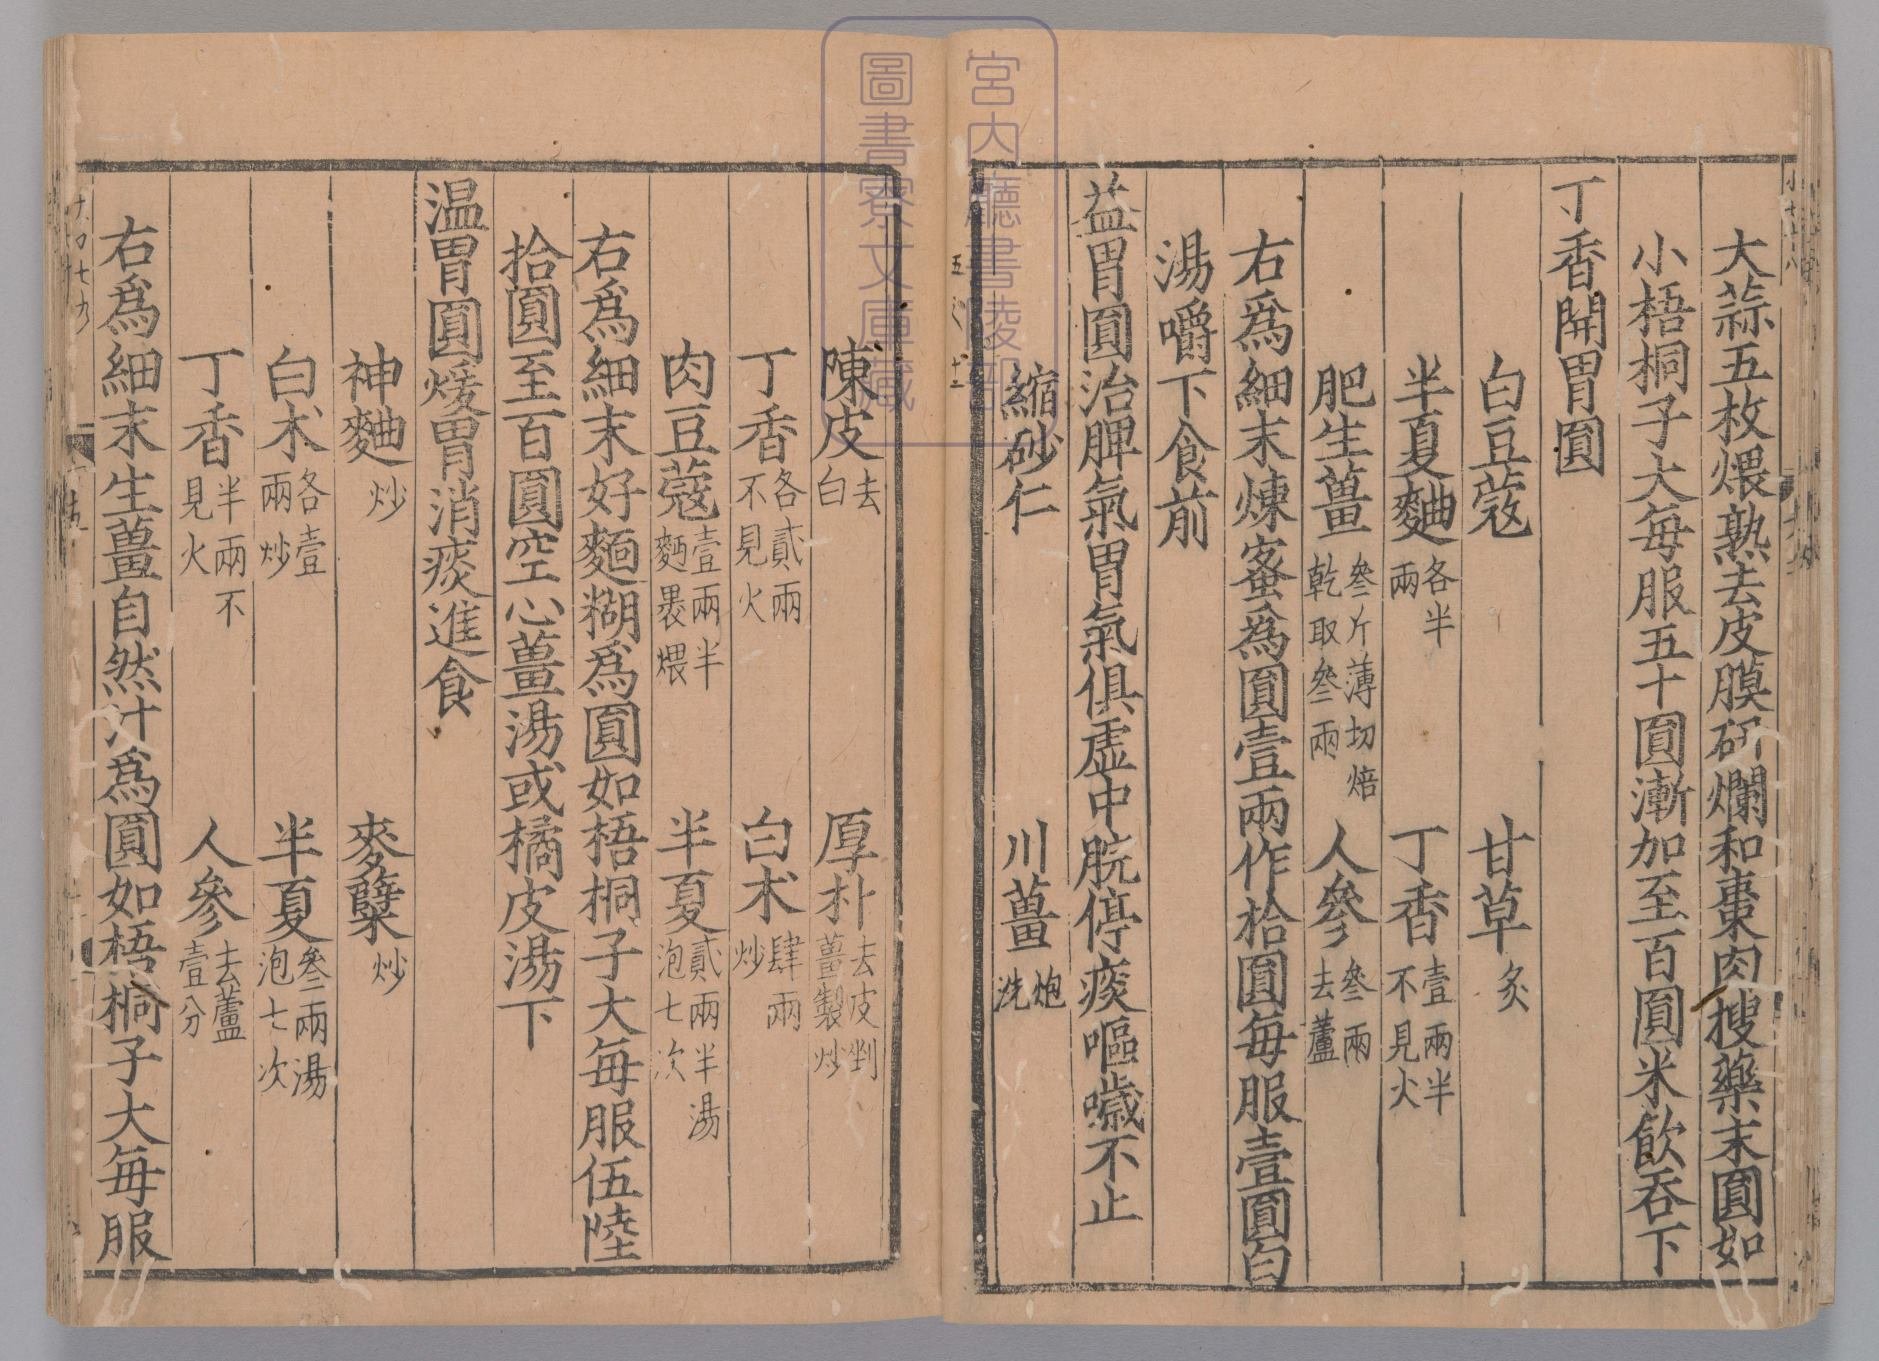 大蒜五枚煨熟去皮膜研爛和棗肉搜藥末圓如
小梧桐子大每服五十圓漸加至百圓米飲吞下
丁香開胃圓
白豆蔻 甘草炙
半夏麯各半兩 丁香壹兩半不見火
肥生薑叄斤薄切焙乾取叄兩 人參叄兩去蘆
右爲細末煉蜜爲圓壹兩作拾圓每服壹圓白
湯嚼下食前
益胃圓治脾氣胃氣俱虛中脘停痰嘔噦不止
縮砂仁 川薑炮洗
陳皮去白 厚朴去皮剉薑製炒
丁香各貳兩不見火 白朮肆兩炒
肉豆蔻壹兩半麪裹煨 半夏貳兩半湯泡七次
右爲細末好麵糊爲圓如梧桐子大每服伍陸
拾圓至百圓空心薑湯或橘皮湯下
温胃圓煖胃消痰進食
神麯炒 麥糵炒
白朮各壹兩炒 半夏叄兩湯泡七次
丁香半兩不見火 人參去蘆壹分
右爲細末生薑自然汁爲圓如梧桐子大每服
宮内廳書陵部
圖書寮文庫藏